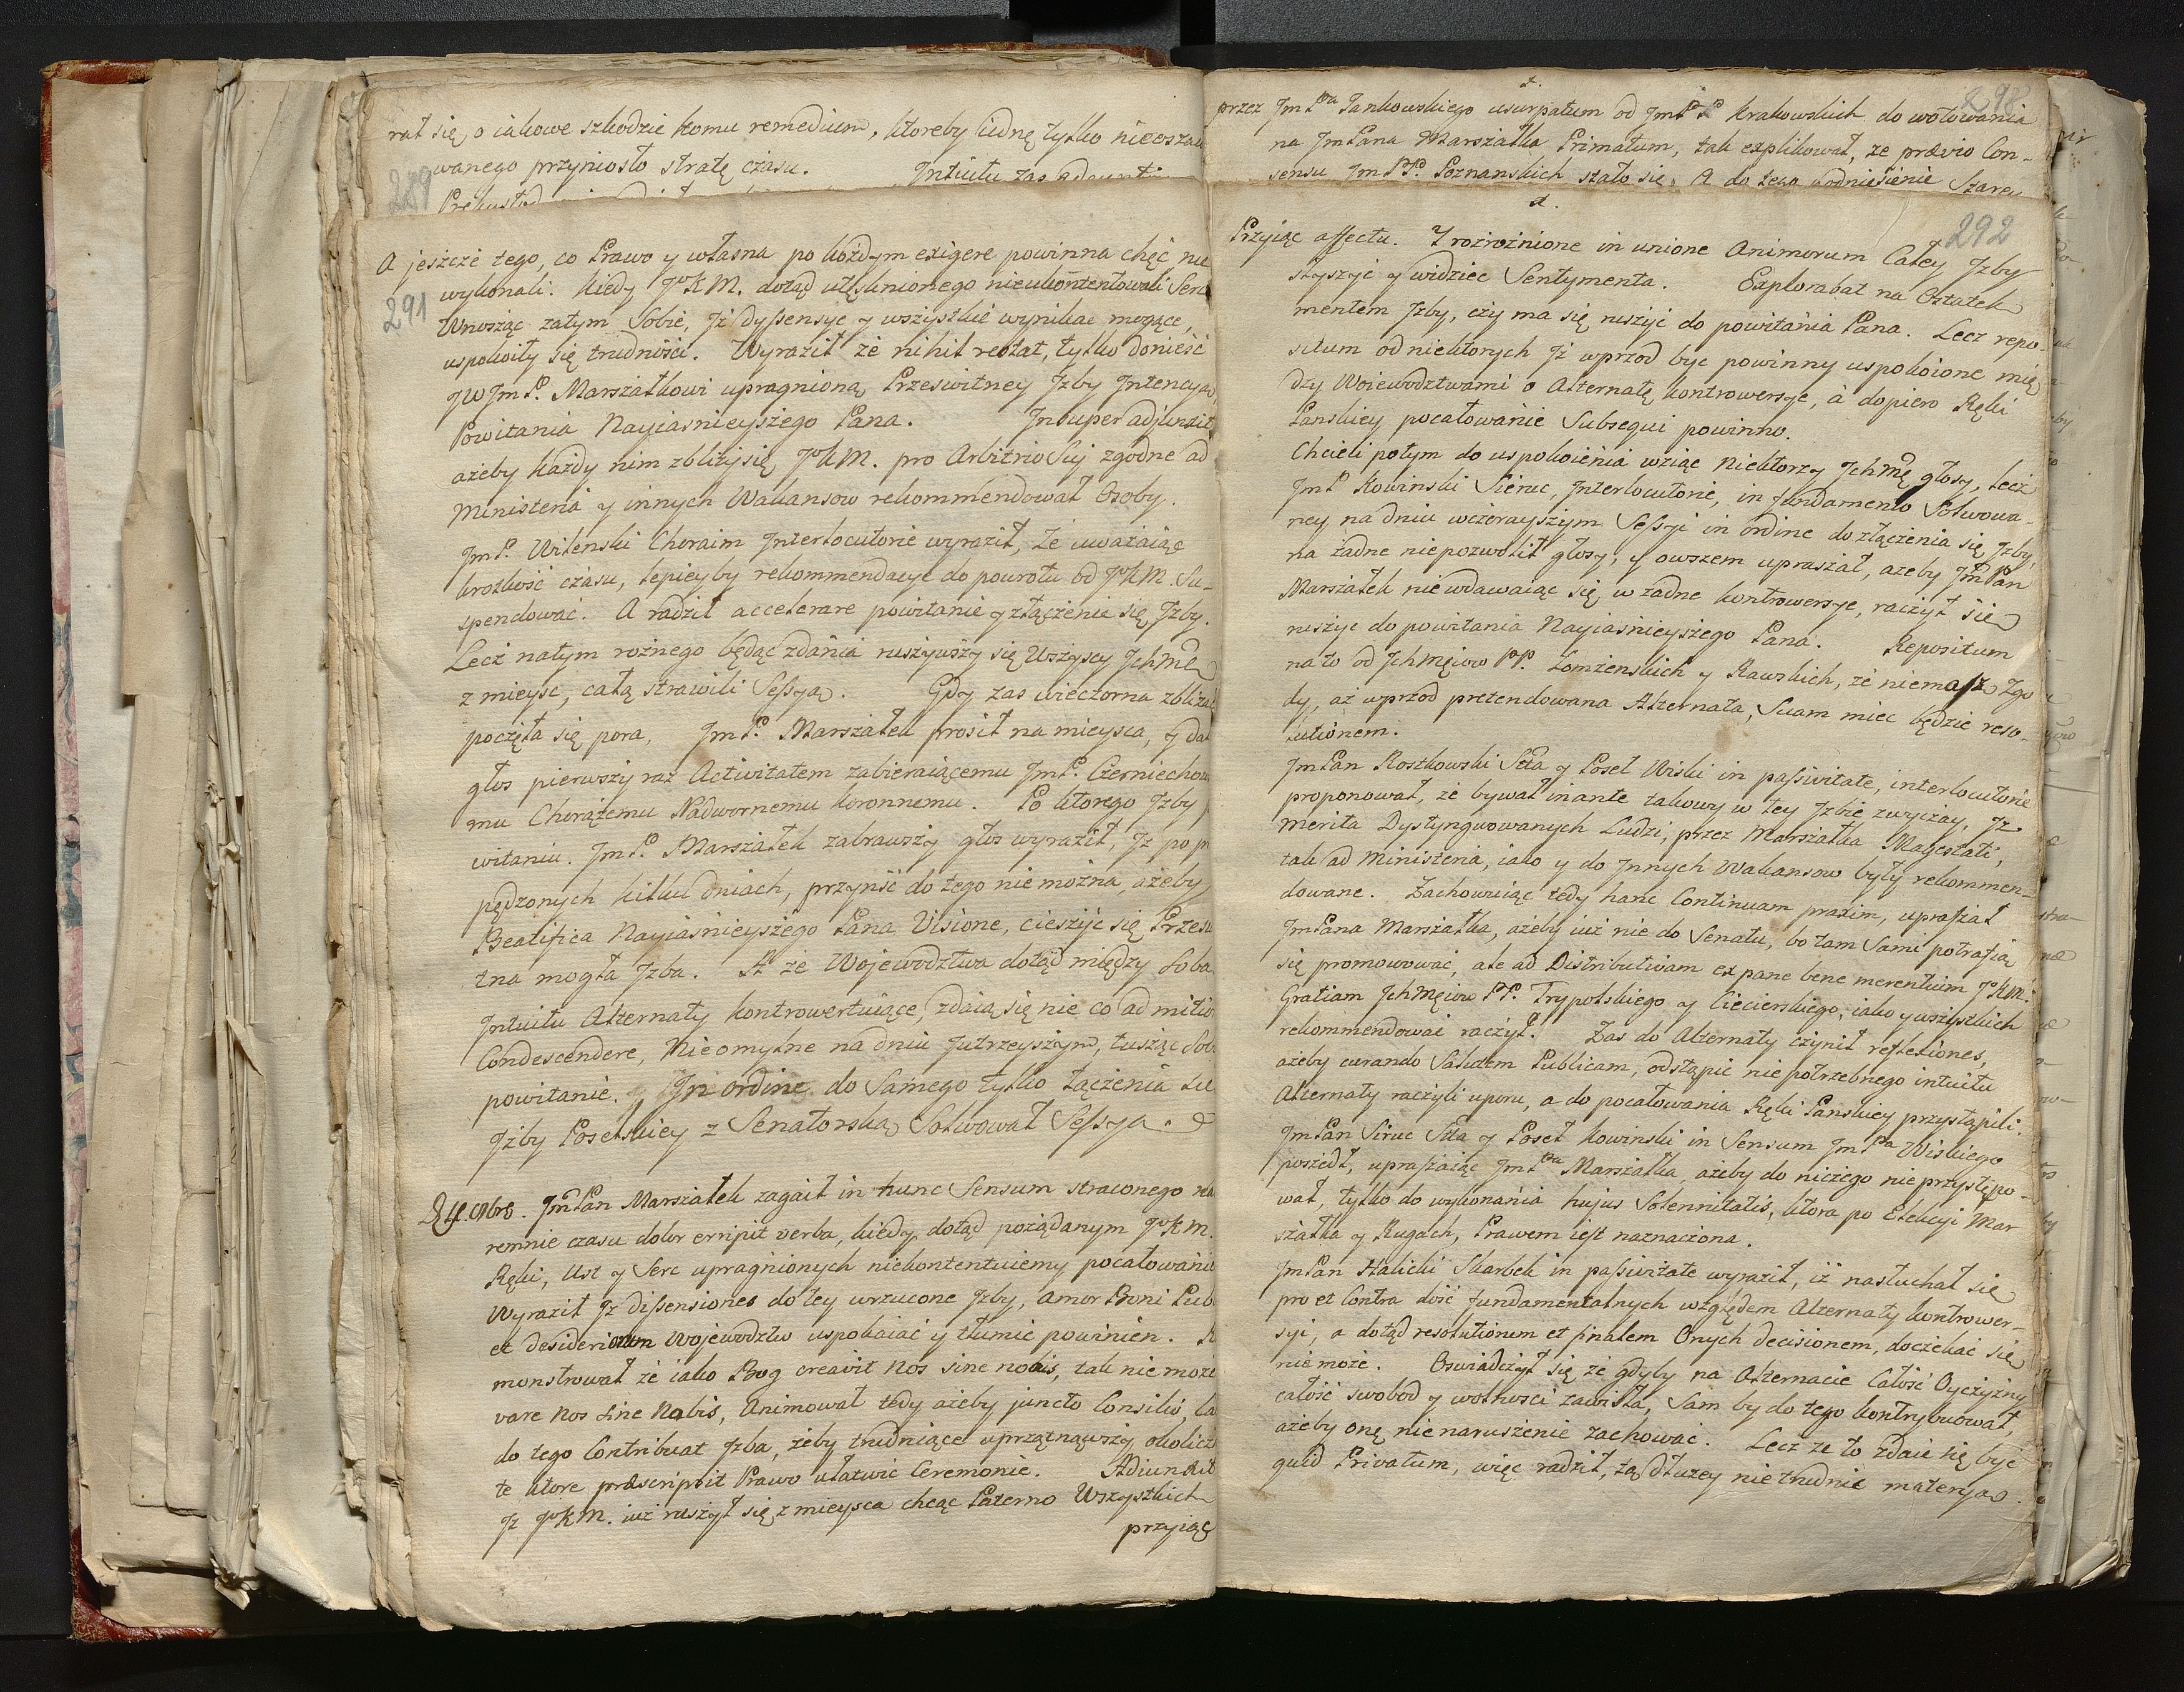 rał się, o iakowe szkodzie komu remedium, ktoreby iednę tylko nieoszaco
wanego przyniosło stratę czasu. Intuitu zas
289
A jeszcze tego, co Prawo y własna po każdym exigere powinna chęć nie
wykonali. Kiedy JoKM. dotąd utęsknionego nieukontentowali Serca
291
Wnosząc zatym Sobie, Jż dyssensye y wszystkie wynikać mogące,
uspokoiły się trudności. Wyraził że nihil restat, tylko donieść
JWJmP. Marszałkowi upragnioną Przeswitney Jzby Intencyą,
Powitania Nayiasnieyszego Pana. Insuper adjunxit
ażeby każdy nim zbliży się JoKM. pro Arbitrio Sui zgodne ad
Ministeria y innych Wakansow rekommendował Osoby.
JmP. Wilenski Choraim Interlocutorie wyraził, że uważaiąc
krotkość czasu, lepieyby rekommendacye do powrotu od JoKM. Su-
spendować. A radził accelerare powitanie y złączenie się Jzby.
Lecz natym rożnego będąc zdania ruszywszy się Wszyscy JchMę
z mieysc, całą strawili Sessyą. Gdy zas wieczorna zbliżać
poczęła się pora, JmP. Marszałek prosił na mieysca, y dał
głos pierwszy raz Activitatem zabieraiącemu JmP. Czerniechow
mu Chorążemu Nadwornemu Koronnemu. Po ktorego Jzby
witaniu. JmP. Marszałek zabrawszy głos wyraził, Jż po
pędzonych kilku dniach, przyiść do tego nie można, ażeby
Beatifica Nayiaśnieyszego Pana Visione, cieszyć się Przesw
tna mogła Jzba. Aż że Wojewodztwa dotąd między Sobą
Intuitu Alternaty kontrowertuiące, zdaią się nie co ad
Condescendere, Nieomylne na dniu Jutrzeyszym, tusząc Sob
powitanie. In ordine do Samego tylko łączenia się
Jżby Poselskiey z Senatorską Solwował Sessyą.
JmPan Marszałek zagaił in hunc Sensum straconego
remnie czasu dolor erripit verba, kiedy dotąd pożądanym JoKM.
Ręki, Ust y Serc upragnionych niekontentuiemy pocałowanie
Wyraził Jż dissensiones do tey wrzucone Jzby, amor Boni Pub
et desiderium Wojewodztw uspokaiać y tłumić powinien.
monstrował że iako Bog creavit nos sine nobis, tak nie może
vare nos sine nobis, Animował tedy ażeby juncto Consilio,
do tego Contribuat Jzba, żeby trudniące uprzątnąwszy okolicz
te ktore præscripsit Prawo ułatwić Ceremonie. Adiunxit
Jż JoKM. iuż ruszył się z mieysca chcąc Paterno Wszystkich
przyiąć
298
przez JmPa Jankowskiego usurpatum od JmPP Krakowskich do wotowania
na JmPana Marszałka Primatum, tak explikował, że prævio Con-
sensu JmPP. Poznanskich stało się. A do tego podniesienie
292
Przyiąć affectu. I rozrożnione in unione Animorum Całey Jzby
słyszyć y widzieć Sentymenta. Explorabat na Ostatek
mentem Jzby, czy ma się ruszyć do powitania Pana. Lecz repo-
situm od niektorych Jż wprzod być powinny uspokoione mię
dzy Wojewodztwami o Alternatę kontrowersye, à dopiero Ręki
Panskiey pocałowanie Subsequi powinno.
Chcieli potym do uspokoienia wziąć niektorzy JchMę głosy, lecz
JmP Kowinski Siruc, Interlocutorie, in fundamento Solwowa-
ney na dniu wczorayszym Sessyi in ordine do złączenia się Jzby,
na żadne niepozwolił głosy, y owszem upraszał, ażeby JmPan
Marszałek niewdawaiąc się w żadne kontrowersye, raczył się
ruszyć do powitania Nayiaśnieyszego Pana. Repositum
na to od JchMęiow PP. Łomżenskich y Rawskich, że niemasz Zgo
dy, aż wprzod pretendowana Alternata, Suam mieć będzie reso-
lutionem.
JmPan Rostkowski Stta y Poseł Wiski in passivitate, interlocutorie
proponował, że bywał inante takowy w tey Jzbie zwyczay, Jż
Merita Dystyngwowanych Ludzi, przez Marszałka Magestati,
tak ad Ministeria, iako y do Innych Wakansow były rekommen-
dowane. Zachowuiąc tedy hanc Continuam praxim, upraszał
JmPana Marszałka, ażeby iuż nie do Senatu, bo tam Sami potrafią
się promowować, ale ad Distributivam ex pane bene merentium JoKM.
Gratiam JchMęiow PP. Trypolskiego y Ciecierskiego, iako y wszystkich
rekommendować raczył. Zas do Alternaty czynił reflexiones,
ażeby curando Salutem Publicam, odstąpić niepotrzebnego intuitu
Alternaty raczyli uporu, a do pocałowania Ręki Panskiey przystąpili.
JmPan Siruc Stta y Poseł Kowinski in Sensum JmPa Wiskiego
poszedł, upraszaiąc JmPa Marszałka, ażeby do niczego nie przystępo-
wał, tylko do wykonania hujus Solennitatis, ktora po Elekcyi Mar
szałka y Rugach, Prawem iest naznaczona.
JmPan Halicki Skarbek in passivitate wyraził, iż nasłuchał się
pro et Contra dość fundamentalnych względem Alternaty kontrower-
syi, a dotąd resolutionem et finalem Onych decisionem, doczekać się
nie może. Oswiadczył się że gdyby na Alternacie Całość Oyczyzny
całość swobod y wolnosci zawisła, Sam by do tego kontrybuował,
ażeby onę nienaruszenie zachować. Lecz że to zdaie się być
quid Privatum, więc radził, tą dłużey nie trudnić materyą.